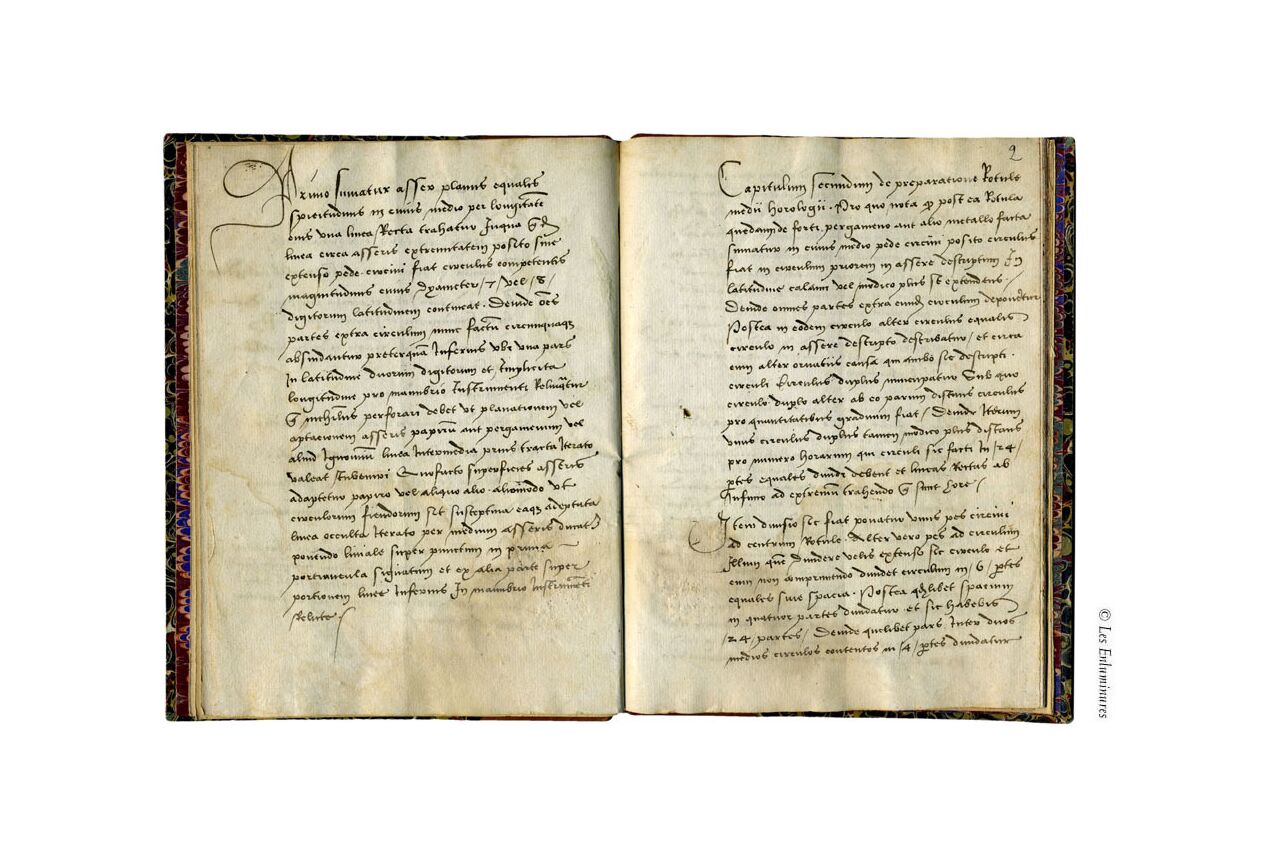 Primo sumatur asser planus equalis
spissitudinis in cuius medio per longitatē
eius vna linea Recta trahatur Iuxta
linea circa asseris extremitatem posito sine
extenso pede circini fiat circulus competentis
magnitudinis cuius dyameter /7/ vel /8/
digitorum latitudinem contineat. Deinde oēs
partes extra circulum nunc factū circumquaqʒ
absindantur preterquā Inferius vbi vna pars
In latitudine duorum digitorum et Implicita
longitudine pro manubrio Instrumenti Relinqtur
nichilus perforari debet vt planationem vel
aptacionem asseris papirū aut pergamenum vel
aliud linea Intermedia prius tracta Iterato
valeat Inveniri Quofacto superficies asseris
adaptetur papiro vel aliquo alio aliomodo vt
circulorum fiendorum sit susceptiua eaqʒ adeptata
linea occulta Iterato per medium asseris ducatr
ponendo liniale super punctum in prima
portiuncula signatum et ex alia parte super
portionem linee Inferius In manubrio Instrumēti
Relicte
2
Capitulum secundum de preparatione Rotule
medii horologii. Pro quo nota post ea Rotula
quedam de forti pergameno aut alio metallo facta
sumatur in cuius medio pede circini posito circulus
fiat in circulum priorem in assere descriptum In
latitudine calami vel modico plus se extendens.
Deinde omnes partes extra eundē circulum deponētur
Postea in eodem circulo alter circulus equalis
circulo in assere descripto describatur, et circa
eum alter ornatus causa qui ambo sic descripti.
circuli Circulus duplus nuncupatur Sub quo
circulo duplo alter ab eo parum distans circulus
pro quantitatibus graduum fiat / Deinde Iterum
vnus circulus duplus tamen modico plus distans
pro numero horarum qui circuli sic facti In /24/
ptes equales diuidi debent et lineas Rectas ab
Infimo ad extremum trahendo sunt hore /
Item diuisio sic fiat ponatur vnus pes circini
ad centrum Rotule. Alter vero pes ad circulum
Illum quē diuidere velis extenso sic circulo et
eum non comprimendo diuidet circulum in /6/ ptes
equales sine spacia. Postea qdlibet spacium
in quatuor partes diuidatur et sic habebis
/24/ partes / Deinde quelibet pars Inter duos
medios circulos contentos in /4/ ptes diuidatur
© Les Enluminures